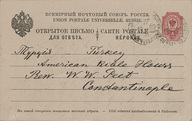 ВСЕМІРНЫЙ ПОЧТОВЫЙ СОЮЗЪ. РОССІЯ.
UNION POSTALE UNIVERSELLE. RUSSIE.
ОТКРЫТОЕ ПИСЬМО CARTE POSTALE
ДЛЯ ОТВѢТА. RÉPONSE.
Турція Turkey
American Bible House
Rev. W. W. Peet
Constantinople